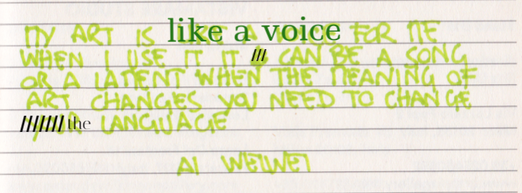 MY ART IS like a voice FOR ME
WHEN I USE IT IT /// CAN BE A SONG
OR A LAMENT WHEN THE MEANING OF
ART CHANGES YOU NEED TO CHANGE
/////// the LANGUAGE
AI WEIWEI